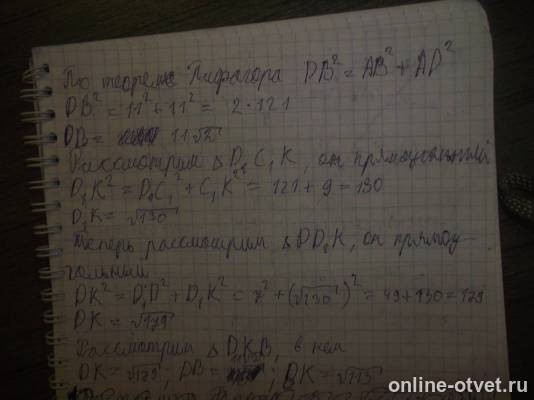 По теореме Пифагора DB² = AB² + AD²
DB² = 11² + 11² = 2·121
DB = 11√2
Рассмотрим △ D₁C₁K, он прямоугольный
D₁K² = D₁C₁² + C₁K² = 121 + 9 = 130
D₁K = √130
Теперь рассмотрим △ DD₁K, он прямоу-
гольный
DK² = D₁D² + D₁K² = 7² + (√130)² = 49 + 130 = 179
DK = √179
Рассмотрим △ DKB, в нем
DK = √179; DB = ; BK = √113
online-otvet.ru